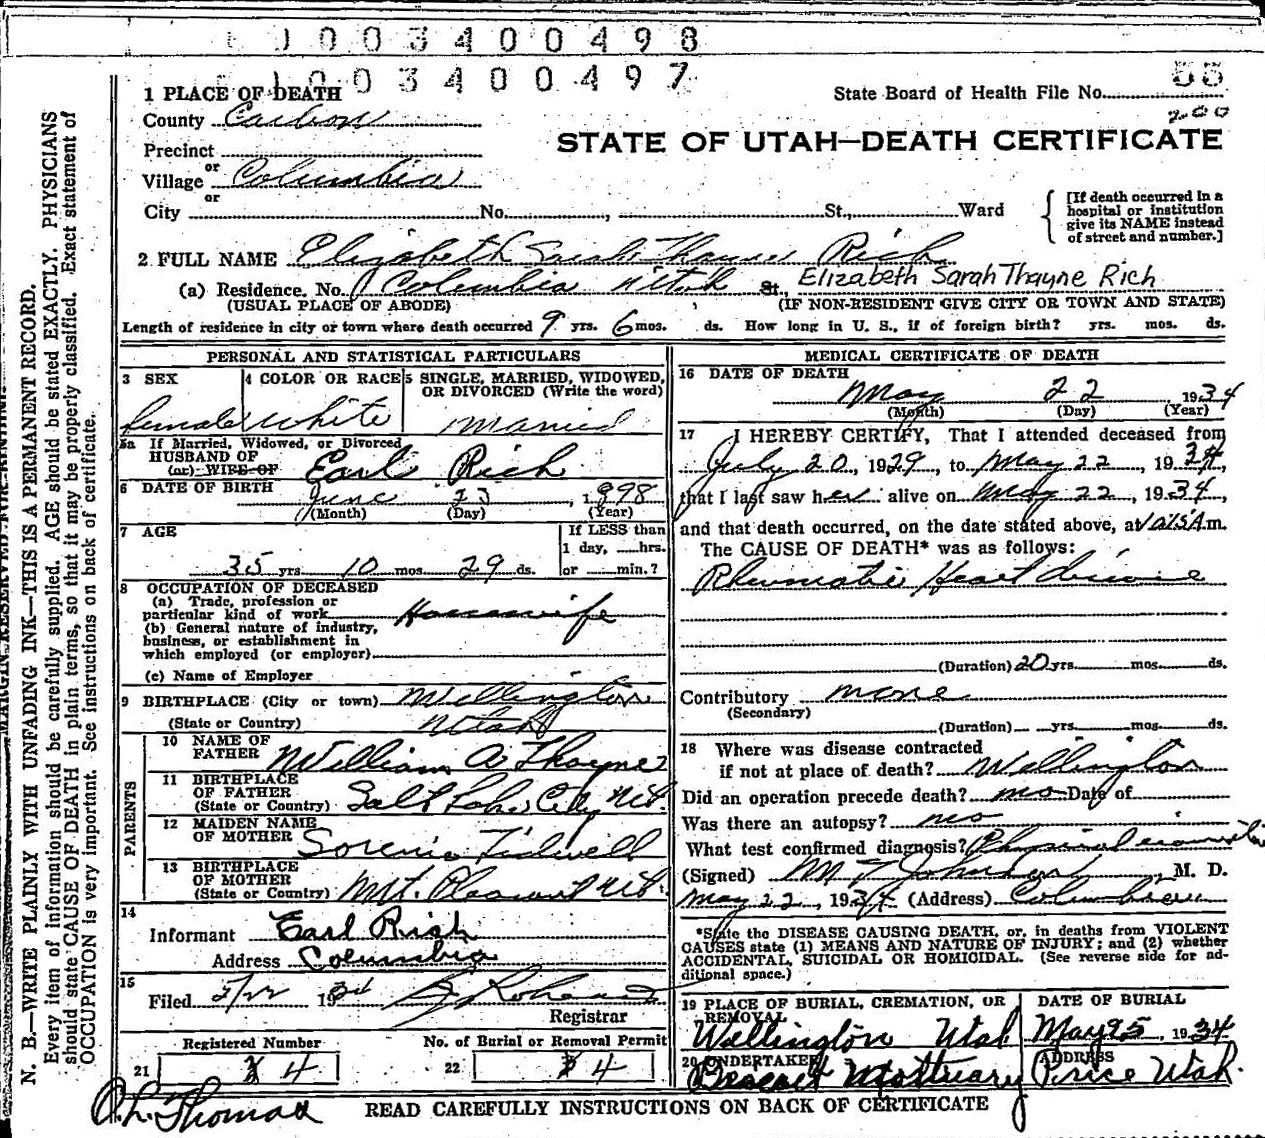 1003400498
1003400497
55
State Board of Health File No.
200
1 PLACE OF DEATH
County Carbon
STATE OF UTAH—DEATH CERTIFICATE
Precinct
or
Village Columbia
or
City No. , St., Ward
[If death occurred in a
hospital or institution
give its NAME instead
of street and number.]
2 FULL NAME Elizabeth Sarah Thayne Rich
(a) Residence. No. Columbia Utah St., Elizabeth Sarah Thayne Rich
(USUAL PLACE OF ABODE) (IF NON-RESIDENT GIVE CITY OR TOWN AND STATE)
Length of residence in city or town where death occurred 9 yrs. 6 mos. ds. How long in U. S., if of foreign birth? yrs. mos. ds.
PERSONAL AND STATISTICAL PARTICULARS
3 SEX
female
4 COLOR OR RACE
white
5 SINGLE, MARRIED, WIDOWED,
OR DIVORCED (Write the word)
Married
5a If Married, Widowed, or Divorced
HUSBAND OF
(or) WIFE OF Earl Rich
6 DATE OF BIRTH June 23, 1898
(Month) (Day) (Year)
7 AGE
35 yrs 10 mos 29 ds.
If LESS than
1 day, hrs.
or min.?
8 OCCUPATION OF DECEASED
(a) Trade, profession or
particular kind of work Housewife
(b) General nature of industry,
business, or establishment in
which employed (or employer)
(c) Name of Employer
9 BIRTHPLACE (City or town) Wellington
(State or Country) Utah
PARENTS
10 NAME OF
FATHER William A Thayne
11 BIRTHPLACE
OF FATHER
(State or Country) Salt Lake City, Ut.
12 MAIDEN NAME
OF MOTHER Sorenia Tidwell
13 BIRTHPLACE
OF MOTHER
(State or Country) Mt. Pleasant Ut.
14
Informant Earl Rich
Address Columbia
15
Filed 5/22 1934
Registrar
Registered Number
21 4
No. of Burial or Removal Permit
22 4
MEDICAL CERTIFICATE OF DEATH
16 DATE OF DEATH
May 22 1934
(Month) (Day) (Year)
17 I HEREBY CERTIFY, That I attended deceased from
July 20, 1929, to May 22, 1934,
that I last saw her alive on May 22, 1934,
and that death occurred, on the date stated above, at A.m.
The CAUSE OF DEATH* was as follows:
Rheumatic Heart disease
(Duration) 20 yrs. mos. ds.
Contributory none
(Secondary)
(Duration) yrs. mos. ds.
18 Where was disease contracted
if not at place of death? Wellington
Did an operation precede death? no Date of
Was there an autopsy? no
What test confirmed diagnosis? Physical
(Signed) M. D.
May 22, 1934 (Address) Columbia
*State the DISEASE CAUSING DEATH, or, in deaths from VIOLENT
CAUSES state (1) MEANS AND NATURE OF INJURY; and (2) whether
ACCIDENTAL, SUICIDAL OR HOMICIDAL. (See reverse side for ad-
ditional space.)
19 PLACE OF BURIAL, CREMATION, OR
REMOVAL
Wellington Utah
DATE OF BURIAL
May 25, 1934
20 UNDERTAKER
Deseret Mortuary
ADDRESS
Price Utah.
Thomas
READ CAREFULLY INSTRUCTIONS ON BACK OF CERTIFICATE
MARGIN RESERVED FOR BINDING
N. B.—WRITE PLAINLY WITH UNFADING INK—THIS IS A PERMANENT RECORD.
Every item of information should be carefully supplied. AGE should be stated EXACTLY. PHYSICIANS
should state CAUSE OF DEATH in plain terms, so that it may be properly classified. Exact statement of
OCCUPATION is very important. See instructions on back of certificate.